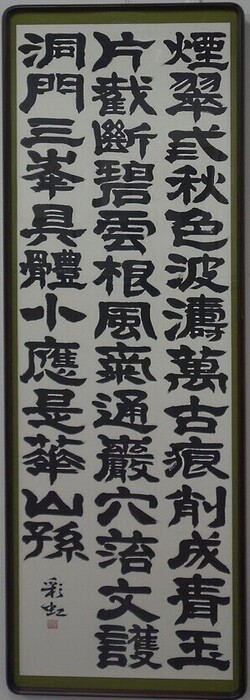 煙翠弎秋色波濤萬古痕削成青玉
片截斷碧雲根風氣通巖穴菭文護
洞門三峯具體小應是華山孫
彩虹